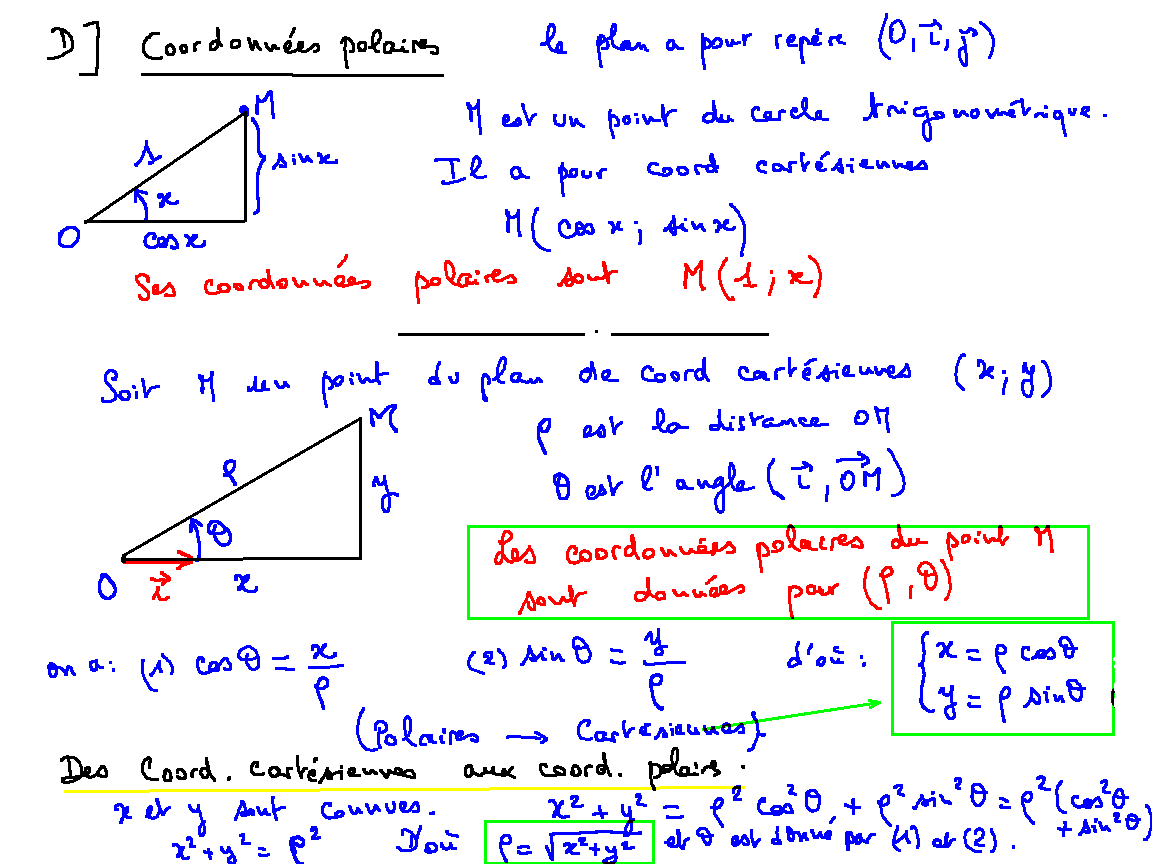 D] Coordonnées polaires
le plan a pour repère (O, i⃗, j⃗)
M
1
sin x
x
O
cos x
M est un point du cercle trigonométrique.
Il a pour coord cartésiennes
M( cos x ; sin x)
Ses coordonnées polaires sont M(1 ; x)
Soit M un point du plan de coord cartésiennes (x ; y)
M
ρ
y
θ
O
i⃗
x
ρ est la distance OM
θ est l'angle (i⃗, OM⃗)
Les coordonnées polaires du point M
sont données par (ρ, θ)
on a : (1) cos θ = x/ρ (2) sin θ = y/ρ d'où : { x = ρ cos θ
y = ρ sin θ
(Polaires → Cartésiennes)
Des Coord. cartésiennes aux coord. polaires.
x et y sont connues. x² + y² = ρ² cos² θ + ρ² sin² θ = ρ² (cos² θ
+ sin² θ)
x² + y² = ρ² D'où ρ = √x²+y² et θ est donné par (1) et (2).